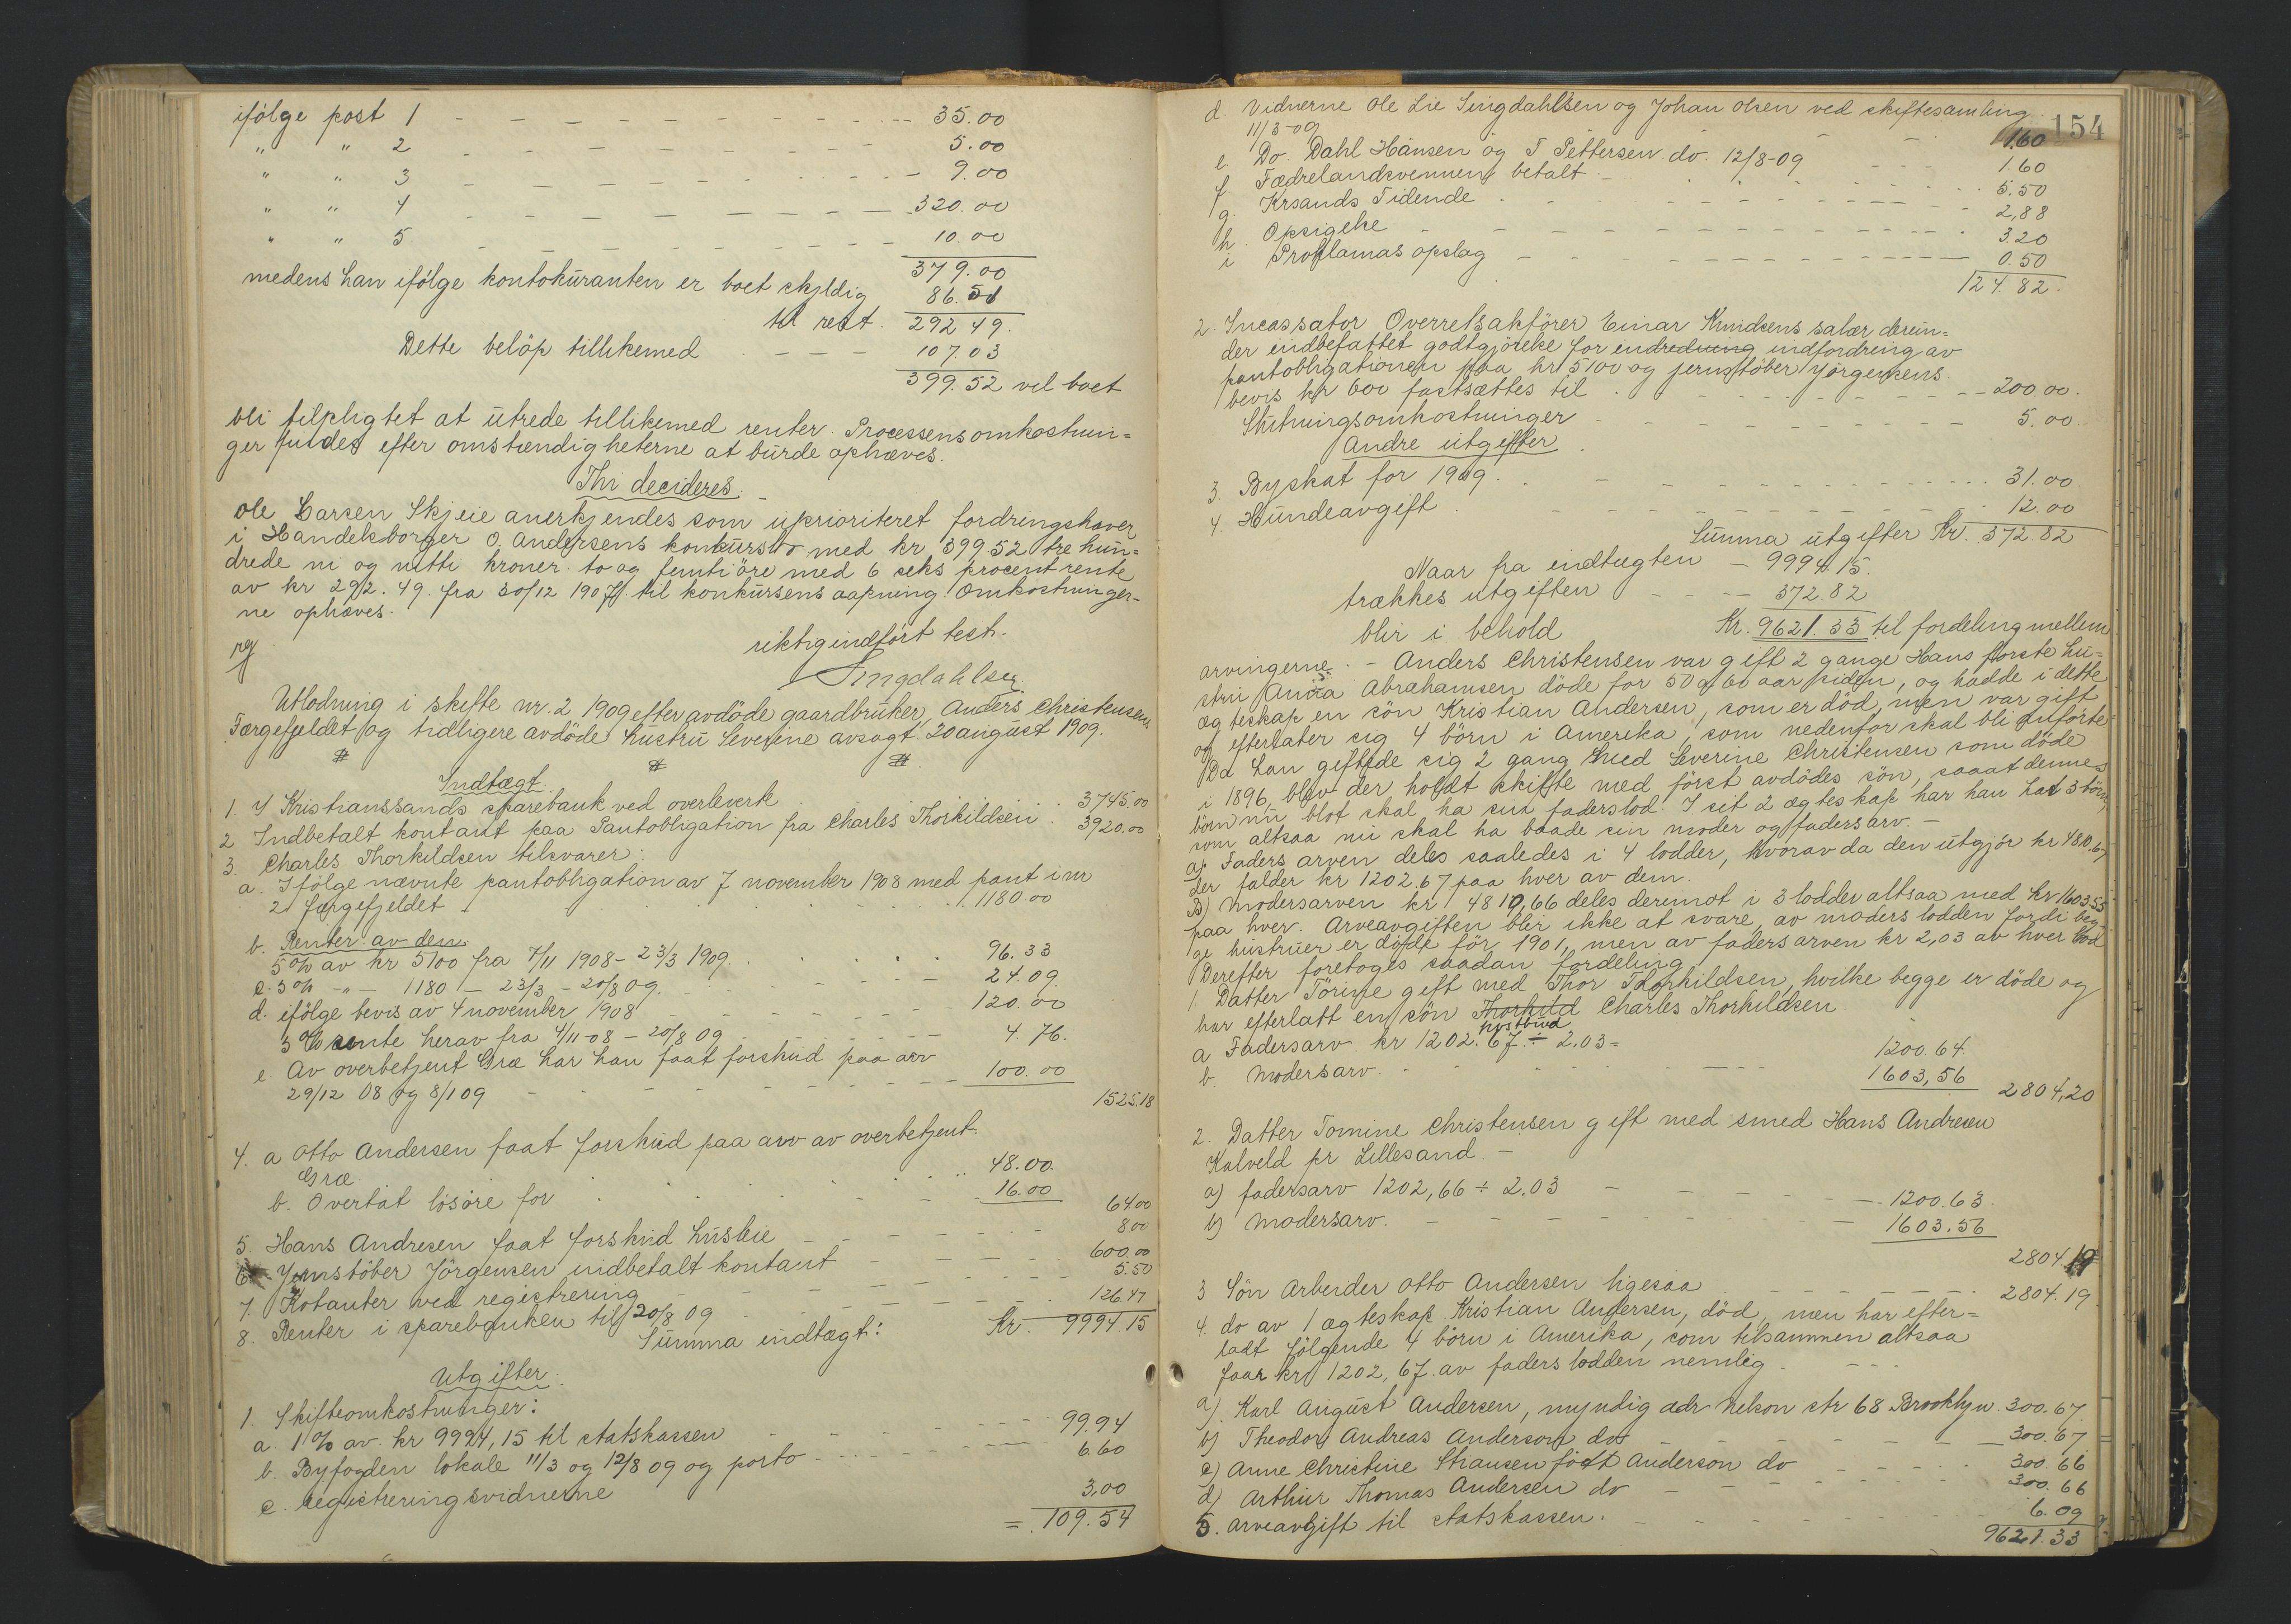 ifölge post 1 - - - - - - - - - - 35.00
" " 2 - - - - - - - - - 5.00
" " 3 - - - - - - - - - 9.00
" " 4 - - - - - - - - - 320.00
" " 5 - - - - - - - - - 10.00
379.00
medens han ifölge kontokuranten er boet skyldig 86.51
til rest. 292 49.
Dette belöp tillikemed - - - - 107.03
399.52 vil boet
bli tilpligtet at utrede tillikemed renter. Processens omkostnin=
ger fandes efter omstændigheterne at burde ophæves.
Thi decideres:
Ole Larsen Skjeie anerkjendes som uprioriteret fordringshaver
i Handelsborger O. Andersens konkursbo med kr 399.52 tre hun=
drede ni og nitti kroner to og femti öre med 6 seks procent rente
av kr 292.49. fra 30/12 1907 til konkursens aapning. Omkostninger-
ne ophæves.
riktig indfört test.
Singdahlsen
Utlodning i skifte nr. 2 1909 efter avdöde gaardbruker, Anders Christensen
Færgefjeldet og tidligere avdöde hustru Severine avsagt 20 august 1909.
Indtægt.
1. I Kristianssands sparebank ved overleverk . . . . 3745.00
2 Indbetalt kontant paa Pantobligation fra Charles Thorkildsen . 3920.00
3. Charles Thorkildsen tilsvarer:
a. Ifölge nævnte pantobligation av 7 november 1908 med pant i nr
21 færgefjeldet . . . . . . . . 1180.00
b. Renter av dem
5% av kr 5100 fra 7/11 1908 - 23/3 1909. . . . . . 96.33
c. 5% -"- 1180 - 23/3 - 20/8 09. . . . . - - 24.09.
d. ifölge bevis av 4 november 1908 - - - - - - 120.00
5% rente herav fra 4/11-08 - 20/8 09 - - - - - 4.76.
e. Av overbetjent Græ har han faat forskud paa arv
29/12 08 og 8/1 09 - - - - - - - - 100.00
1525.18
4. a Otto Andersen faat forskud paa arv av overbetjent
Græ . . . . . . . . . 48.00.
b. Overtat lösöre for . . . . . - - - 16.00
64.00
5. Hans Andresen faat forskud husleie - - - - - - 8.00
6 Jernstöber Jörgensen indbetalt kontant - - - - - 600.00
7. Kotanter ved registrering - - - - - - - - 5.50
8. Renter i sparebanken til 20/8 09 - - - - - - 126.47
Summa indtægt: Kr. 9994.15
Utgifter:
1. Skifteomkostninger:
a. 1% av kr 9994,15 til statskassen - - - - - 99.94
b. Byfogden lokale 11/3 og 12/8 09 og porto - - - - - 6.60
c. registreringsvidnerne 3,00
= 109.54
154
d. Vidnerne Ole Lie Singdahlsen og Johan Olsen ved skiftesamling
11/3-09 - - 1.60
e Do. Dahl Hansen og T Pettersen do. 12/8-09 - - 1.60
f. Fædrelandsvennen betalt - . . . . . . 5.50
g. Krsands Tidende . - - - - - - - - 2,88
h. Opsigelse - - - - - - - - - - 3.20
i Proklamas opslag - - - - - - - - 0.50
124.82.
2. Incassator Overretsakförer Einar Knudsens salær derun=
der indbefattet godtgjörelse for indredning indfordring av
pantobligationen paa kr 5100 og jernstöber Jörgensens
bevis kr 600 fastsættes til . . . . . - - - 200.00.
Slutningsomkostninger - - - - - - - - 5.00
Andre utgifter
3. Byskat for 1909. . - - - - - - . . . 31.00
4. Hundeavgift . - - - - - - - 12.00
Summa utgifter Kr. 372.82
Naar fra indtægten - 9994.15.
trækkes utgiften - - - - 372.82
blir i behold Kr. 9621.33 til fordeling mellem
arvingerne. - Anders Christensen var gift 2 gange Hans förste hu=
stru Anna Abrahamsen döde for 50 a 60 aar siden, og hadde i dette
ægteskap en sön Kristian Andersen, som er död, men var gift
og efterlater sig 4 börn i Amerika, som nedenfor skal bli anförte.
Da han giftede sig 2 gang med Severine Christensen som döde
i 1896, blev der holdt skifte med först avdödes sön, saaat dennes
börn nu blot skal ha sin faderslod. I sit 2 ægteskap har han hat 3 börn
som altsaa nu skal ha baade sin moder og fadersarv. -
a) Faders arven deles saaledes i 4 lodder, hvorav da den utgjör kr 4810.67
der falder kr 1202.67 paa hver av dem.
B) Modersarven kr 4810,66 deles derimot i 3 lodder altsaa med kr 1603.55
paa hver. Arveavgiften blir ikke at svare, av moders lodden fordi beg
ge hustruer er döde för 1901, men av fadersarven kr 2,03 av hver lod
Derefter foretoges saadan fordeling
1 Datter Törine gift med Thor Thorkildsen, hvilke begge er döde og
har efterlatt en sön Thorkild Charles Thorkildsen
a Fadersarv kr 1202.67 ÷ 2.03 = 1200.64
b. Modersarv. - - - - - - - 1603,56 2804,20
2. Datter Tomine Christensen gift med smed Hans Andresen
Kalveld pr Lillesand. -
a) fadersarv 1202,66 ÷ 2.03 - - - - - - 1200.63.
b) Modersarv. - - - - - - - - 1603.56
2804.19
3 Sön Arbeider Otto Andersen ligesaa - - - - - - 2804.19
4. do av 1 ægteskap. Kristian Andersen, död, men har efter=
ladt fölgende 4 börn i Amerika, som tilsammen altsaa
faar kr 1202,67. av faders lodden nemlig - - -
a). Karl August Andersen, myndig adr Nelson str 68 Brooklyn. 300.67
b) Theodor Andreas Anderson do - - - - - - - 300.67
c) Anne Christine Strausen födt Anderson do - - - - 300.66
d) Arthur Thomas Andersen do - - - - - - 300.66
5. Arveavgift til statskassen. - - - - - - - 6.09
9621.33